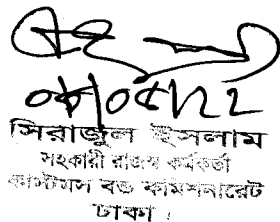 ০৮/০৫/২২
সিরাজুল ইসলাম
সহকারী রাজস্ব কর্মকর্তা
কাস্টমস বন্ড কমিশনারেট
ঢাকা।